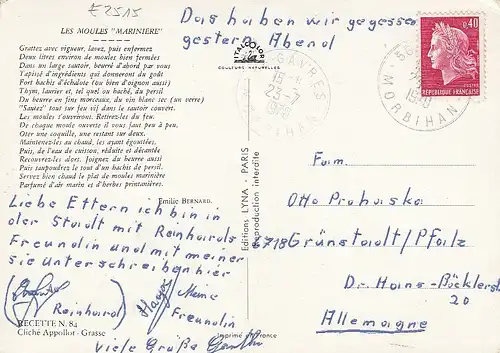 £2515
Das haben wir gegessen
gestern Abend
LES MOULES "MARINIÈRE"
Grattez avec vigueur, lavez, puis enfermez
Deux litres environ de moules bien fermées
Dans un large sautoir, beurré d'abord par vous
Tapissé d'ingrédients qui donneront du goût
Fort hachis d'échalote (ou bien d'oignon aussi)
Thym, laurier et, tel quel ou haché, du persil
Du beurre en fins morceaux, du vin blanc sec (un verre)
"Sautez" tout sur feu vif dans le sautoir couvert.
Les moules s'ouvriront. Retirez-les du feu.
De chaque moule ouverte il vous faut peu à peu,
Oter une coquille, une restant sur deux.
Maintenez-les au chaud, les ayant égouttées,
Puis, de l'eau de cuisson, réduite et décantée
Recouvrez-les alors. Joignez du beurre aussi
Puis saupoudrez le tout d'un hachis de persil.
Servez bien chaud le plat de moules marinière
Parfumé d'air marin et d'herbes printanières.
Emilie BERNARD.
ITALCOLOR
COULEURS NATURELLES
MORBIHAN
0,40
REPUBLIQUE FRANÇAISE
POSTES
MORBIHAN
Editions LYNA - PARIS
Reproduction interdite
Liebe Eltern ich bin in
der Stadt mit Reinhards
Freundin und mit meiner
sie Unterschreiben hier
Reinhard
Meine
Freundin
viele Grüße
Fam.
Otto Prohaska
6718 Grünstadt/Pfalz
Dr. Hans-Böcklerst
20
Allemagne
RECETTE N. 84
Cliché Appollot - Grasse
Imprimé en France